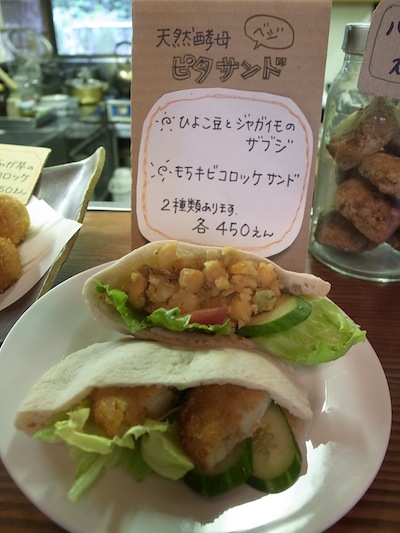 天然酵母
ベジ
ピタサンド
ひよこ豆とジャガイモの
サブジ
もちキビコロッケサンド
2種類あります。
各450えん
ロッケ
50えん